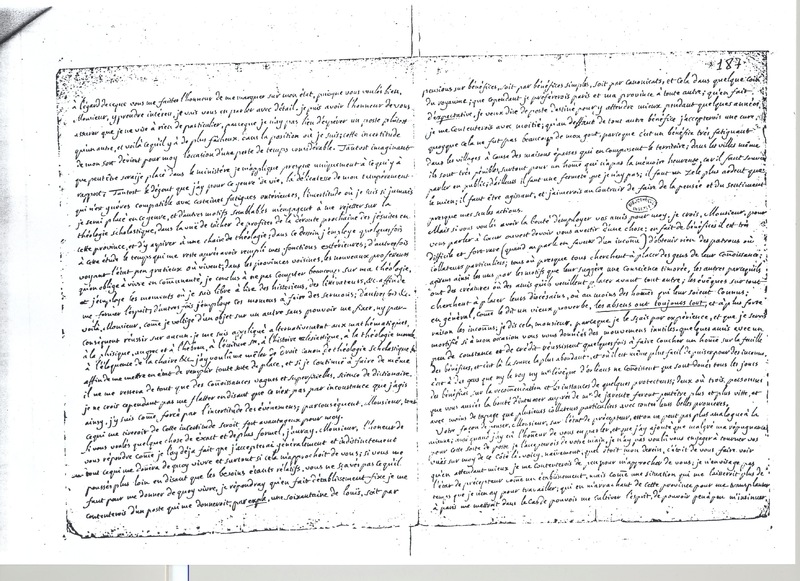 à l'égard de ce que vous me faittes l'honneur de me marquer sur mon état, puisque vous voulés bien,
Monsieur, y prendre interest, je vais vous en parler avec détail. je puis avoir l'honneur de vous
assurer que je ne vise à rien de particulier, parceque je n'ay pas lieu d'espérer un poste plutost
qu'un autre, et voilà ce qu'il y a de plus facheux dans la position où je suis; cette incertitude
de mon sort devient pour moy l'occasion d'une perte de temps considérable. Tantost imaginant
que peut être seraije placé dans le ministère, je m'applique presque uniquement à ce qui y a
rapport; Tantost le dégout que j'ay pour ce genre de vie, la délicatesse de mon tempérament
qui n'est guères compatible avec certaines fatigues extérieures, l'incertitude où je suis si jamais
je seray placé en ce genre, et d'autres motifs semblables m'engagent à me rejetter sur la
théologie scholastique, dans la vuë de tâcher de profiter de la déroute prochaine des jésuites en
cette province, et d'y aspirer à une chaire de théologie; dans ce dessein j'employe quelquefois
à cette étude le temps qui me reste après avoir rempli mes fonctions extérieures; d'autresfois
voyant l'état peu gratieux où vivent, dans les provinces voisines, les nouveaux professeurs
qu'on oblige à vivre en communauté, je conclus à ne pas compter beaucoup sur ma théologie,
et j'employe les moments où je suis libre à lire des historiens, des littérateurs, &c. affin de
me former l'esprit; d'autres fois j'employe ces momens à faire des sermons; d'autres fois &c.
voilà, Monsieur, comme je voltige d'un objet sur un autre sans pouvoir me fixer, ny par
conséquent réussir sur aucun. je me suis appliqué alternativement aux mathématiques,
à la physique, au grec et à l'hébreu, à l'écriture ste, à l'histoire ecclésiastique, à la théologie morale
à l'éloquence de la chaire &c. j'ay voulu me mêler d'écrit contre la théologie scholastique &c.
affin de me mettre en état de remplir toute sorte de place, et si je continuë à faire de même
il ne me restera de tout que des connoissances vagues et superficielles, science de dictionaire.
je ne crois cependant pas me flatter en disant que ce n'est pas par inconstance que j'agis
ainsy. j'y suis comme forcé par l'incertitude des événemens; par conséquent, Monsieur, tout
ce qui me tireroit de cette incertitude seroit fort avantageux pour moy.
si vous voulés quelque chose de exact et de plus formel, j'auray, Monsieur, l'honneur de
vous répondre comme je l'ay déjà fait que j'accepterai généralement et indistinctement
tout ce qui me donnera de quoy vivre et surtout si cela m'approchoit de vous; si vous me
poussés plus loin en disant que les besoins étants relatifs, vous ne sçavés pas ce qu'il
faut pour me donner de quoy vivre, je répondray qu'en fait d'établissement fixe je me
contenterois d'un poste qui me donneroit, par exple, une soixantaine de louis, soit par
187
pensions sur bénéfices, soit par bénéfices simples, soit par canonicats, et cela dans quelque coin
du royaume; que cependant je préférerois paris et ma province à toute autre; qu'en fait
d'expectative, je veux dire de poste destiné pour y attendre mieux pendant quelques années,
je me contenterois avec moitié; qu'au deffaut de tout autre bénéfice j'accepterois une cure,
quoyque cela ne fut pas beaucoup de mon gout, parceque c'est un bénéfice très fatiguant
dans les villages à cause des maisons éparses qui en composent le territoire; dans les villes même
ils sont très pénibles, surtout pour un home qui n'a pas la mémoire heureuse, car il faut souvent
parler en public; d'ailleurs il faut une fermeté que je n'ay pas; il faut un zele plus ardent que
le mien; il faut être agissant, et j'aimerois au contraire de faire de la pensée et du sentiment
presque mes seules actions.
Mais si vous voulés avoir la bonté d'employer vos amis pour moy, je crois, Monsieur, pour
vous parler à cœur ouvert devoir vous avertir d'une chose; en fait de bénéfices il est très
difficile et fort rare (quand on parle en faveur d'un inconnu) d'obtenir rien des patrons ou
collateurs particuliers; tous ou presque tous cherchent à placer des gens de leur connoissance;
ont des créatures ou des amis qu'ils veuillent placer avant tout autre; les évêques sur tout
cherchent à placer leurs diocésains, ou au moins des homes qui leur soient connus;
en général, comme le dit un vieux proverbe, les absens ont toujours tort, et à plus forte
raison les inconnus; je dis cela, monsieur, parceque je le sçais par expérience, et que je serois
mortifié si à mon occasion vous vous donniés des mouvemens inutiles. quelques amis avec un
peu de constance et de crédit réussissent quelquefois à faire coucher un home sur la feuille
des bénéfices, et c'est là la source la plus abondante, et où il est même plus facile de puiser pour des inconnus,
c'est à dire gens que ny le roy ny mr l'évêque d'orleans ne connoissent que sont donnés tous les jours
des bénéfices, sur la recommandation et les instances de quelques protecteurs; deux ou trois personnes
que vous auriés la bonté d'intimer auprès de mr de jarente feront peutêtre plus et plus vite, et
avec moins de tapage que plusieurs collateurs particuliers avec toutes leurs belles promesses.
Votre façon de penser, Monsieur, sur l'état de précepteur, est on ne peut pas plus analogue à la
mienne; aussi quand j'ay eu l'honneur de vous en parler, et que j'ay ajouté que malgré ma répugnance
pour cette sorte de poste je l'acceptrois de votre main, je n'ay pas voulu vous engager à tourner vos
vuës sur moy de ce côté là. voicy, naïvement, quel étoit mon dessein, c'étoit de vous faire voir
qu'en attendant mieux, je me contenterois de peu, pour m'approcher de vous; je n'envisage pas
l'état de précepteur comme un établissement, mais comme une situation qui me laisseroit plus de
temps que je n'en ay pour travailler, qui en m'arrachant de cette province pour me transplanter
à paris me mettroit dans le cas de pouvoir me cultiver l'esprit, de pouvoir peu à peu m'insinuer